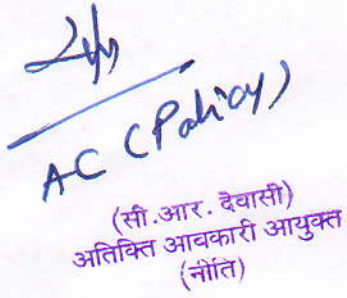 AC (Policy)
(सी.आर. देवासी)
अतिक्ति आबकारी आयुक्त
(नीति)